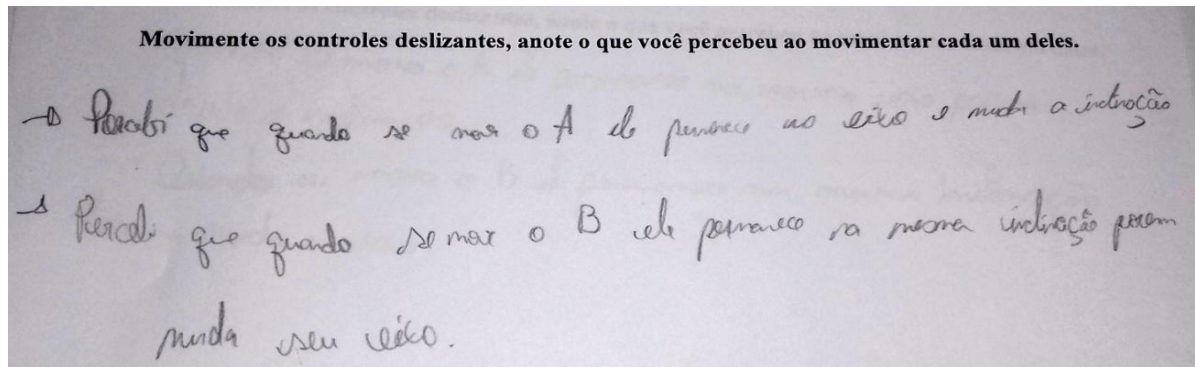 Movimente os controles deslizantes, anote o que você percebeu ao movimentar cada um deles.
→ Percebi que quando se mexe o A ele permanece no eixo e muda a inclinação
→ Percebi que quando se mexe o B ele permanece na mesma inclinação porem
muda seu eixo.